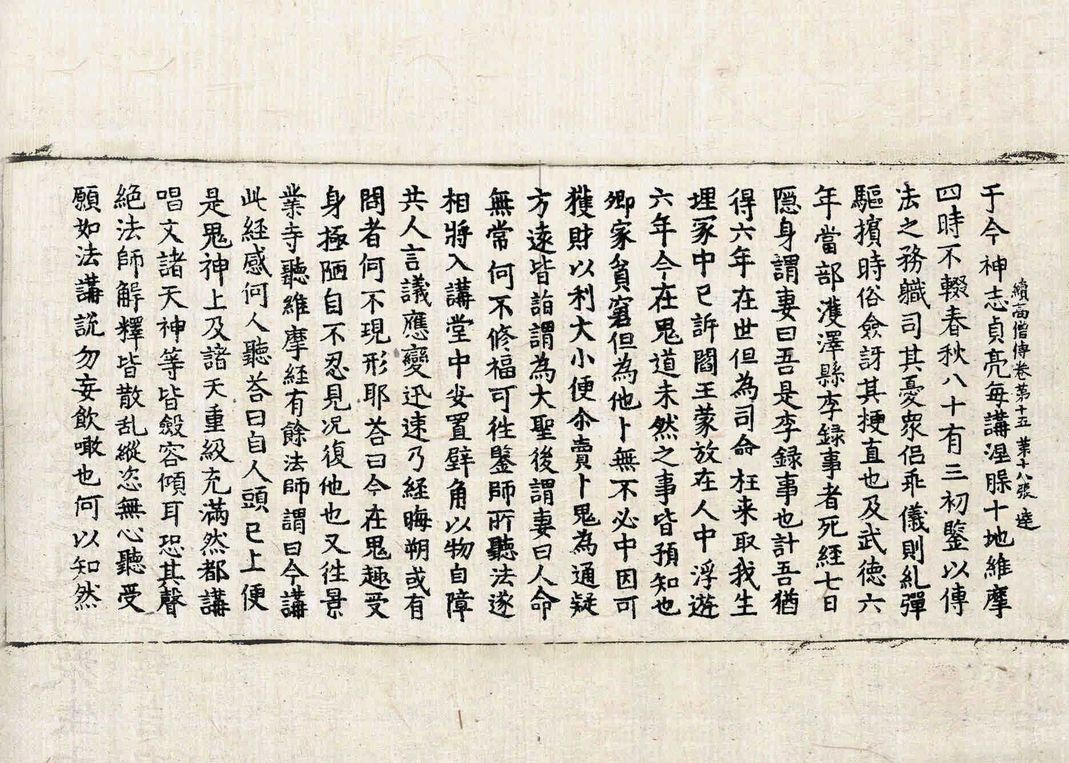 于今神志貞亮每講涅槃十地維摩
續高僧傳卷第十五 第十八張 達
四時不輟春秋八十有三初鑒以傳
法之務職司其憂衆侶乖儀則糺彈
驅擯時俗僉訝其梗直也及武德六
年當部濩澤縣李録事者死經七日
隱身謂妻曰吾是李録事也計吾猶
得六年在世但為司命枉来取我生
埋冢中已訴閻王蒙放在人中浮遊
六年今在鬼道未然之事皆預知也
卿家貧窘但為他卜無不必中因可
獲財以利大小便尒賣卜鬼為通疑
方遠皆詣謂為大聖後謂妻曰人命
無常何不修福可徃鑒師所聽法遂
相將入講堂中安置壁角以物自障
共人言議應變迅速乃經晦朔或有
問者何不現形耶荅曰今在鬼趣受
身極陋自不忍見况復他也又徃景
業寺聽維摩経有餘法師謂曰今講
此経感何人聽荅曰自人頭已上便
是鬼神上及諸天重級充滿然都講
唱文諸天神等皆斂容傾耳恐其聲
絶法師解釋皆散乱縱恣無心聽受
願如法講説勿妄飲噉也何以知然